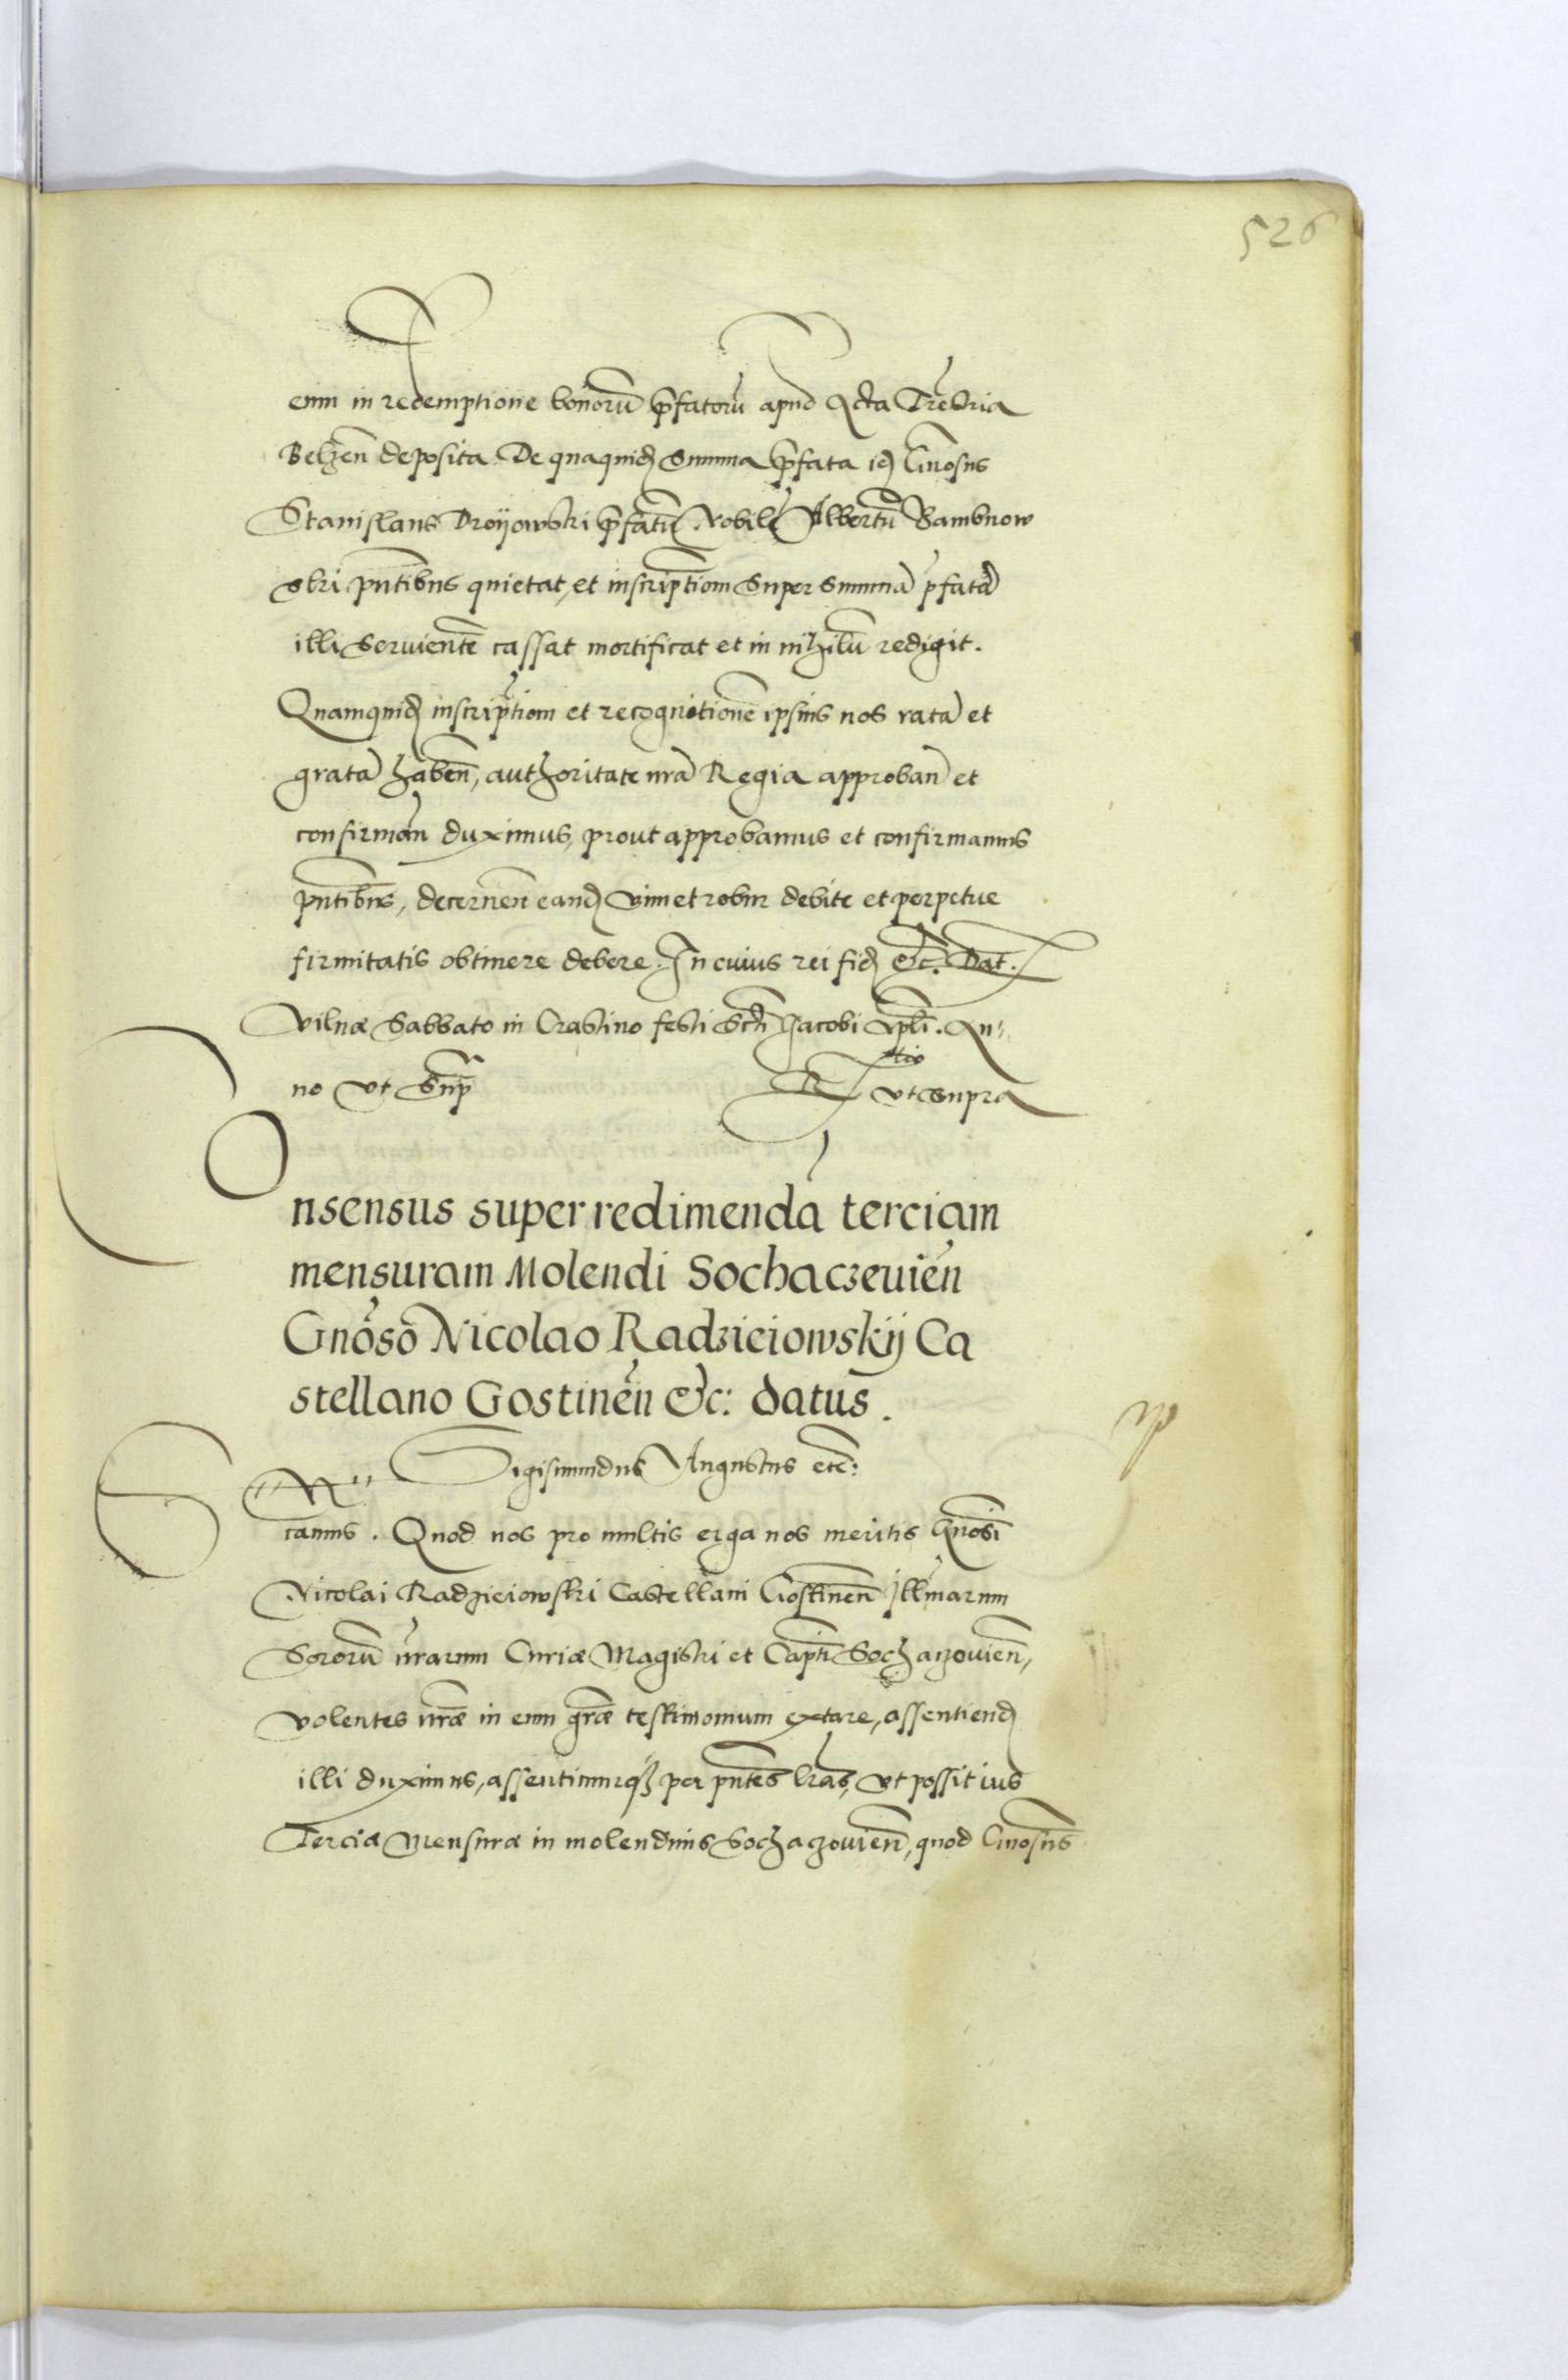 526
eum in redemptione bonorū p̄fatorū apud Acta Trēstria
Belzen̄ deposita. De quaquid̄ summa p̄fata id̄ Gn̄osus
Stanislaus Droijowski p̄fatū Nobilē Albertū Bambnow
ski pn̄tibus quietat, et inscriptiōm super summā p̄fatā
illi seruientē cassat mortificat et in nihilū redigit.
Quamquid̄ inscriptiōm et recognitionē ipsius nos ratā et
gratā haben̄, authoritate nr̄a Regia approban̄ et
confirman̄ duximus, prout approbamus et confirmamus
pn̄tibus, decernen̄ eand̄ vim et robur debite et perpetue
firmitatis obtinere debere. In cuius rei fid̄ etc̄. Dat̄.
Vilnæ Sabbato in Crastino festi Sctī Jacobi Apl̄i. An-
no vt Sup̄ R̄tio vt supra
Consensus super redimendā terciam
mensuram Molendi Sochaczeuien̄
Gn̄oso Nicolao Radzieiowskij Ca
stellano Gostinen̄ etc: datus.
Sigismundus Augustus etc̄:
S
canus. Quod nos pro multis erga nos meritis Gn̄osi
Nicolai Radzieiowski Castellani Gostinen̄ Ill̄marum
Sororū nr̄arum Curiæ Magistri et Captī Sochaczouien̄,
volentes nr̄æ in eum gr̄æ testimonium extare, assentiend̄
illi duximus, assentimurq3 per pn̄tes lr̄as, vt possit ius
Terciæ Mensuræ in molendinis Sochaczouien̄, quod Gn̄osus